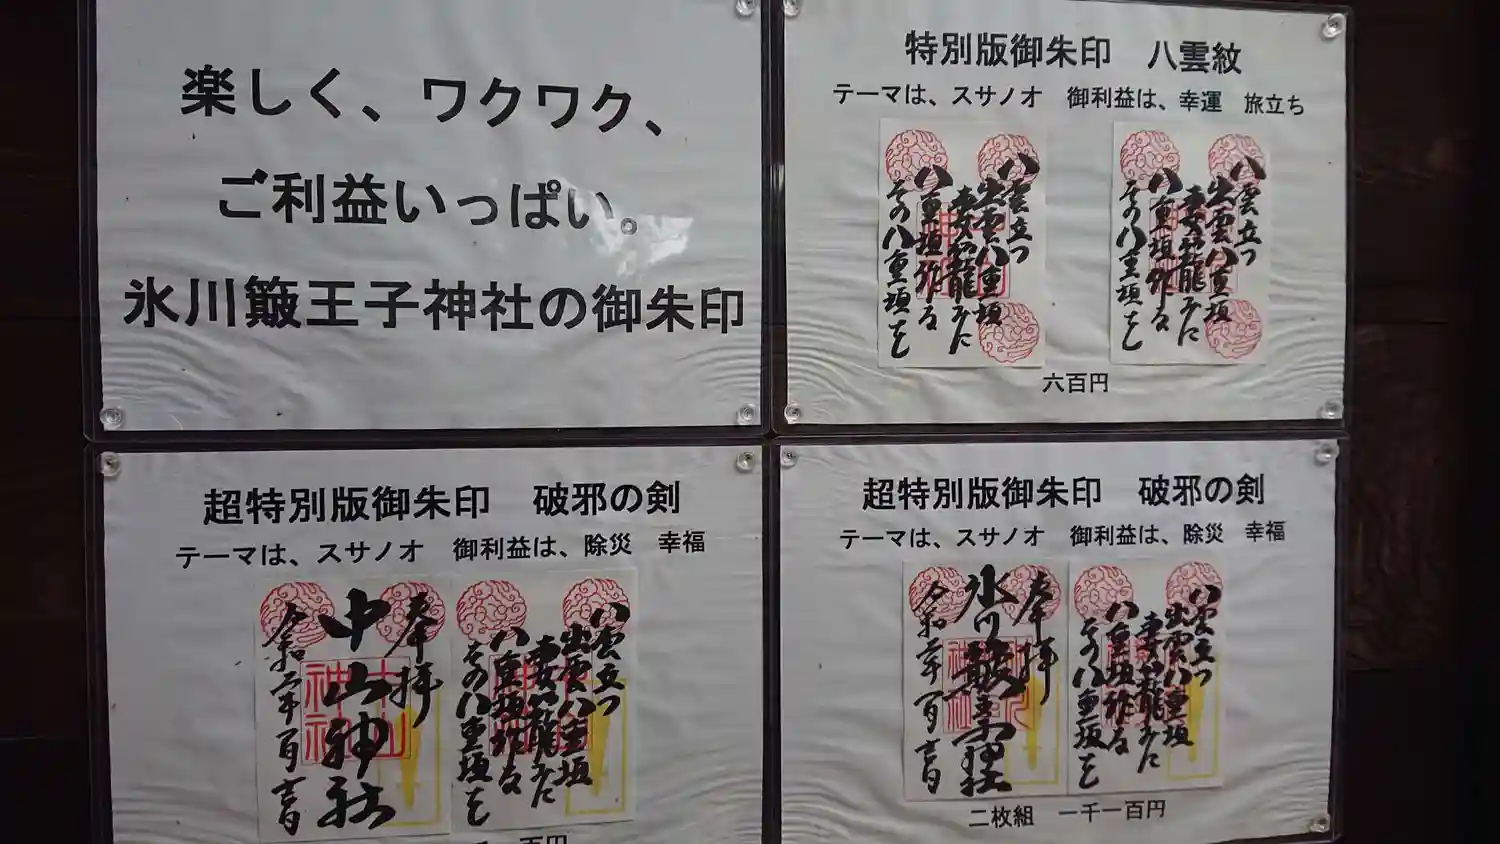 楽しく、ワクワク、
ご利益いっぱい。
氷川簸王子神社の御朱印
特別版御朱印　八雲紋
テーマは、スサノオ　御利益は、幸運　旅立ち
八雲立つ
出雲八重垣
妻籠みに
八重垣作る
その八重垣を
八雲立つ
出雲八重垣
妻籠みに
八重垣作る
その八重垣を
六百円
超特別版御朱印　破邪の剣
テーマは、スサノオ　御利益は、除災　幸福
奉拝
中山神社
令和二年一月吉日
八雲立つ
出雲八重垣
妻籠みに
八重垣作る
その八重垣を
百円
超特別版御朱印　破邪の剣
テーマは、スサノオ　御利益は、除災　幸福
奉拝
氷川簸王子神社
令和二年一月吉日
八雲立つ
出雲八重垣
妻籠みに
八重垣作る
その八重垣を
二枚組　一千一百円